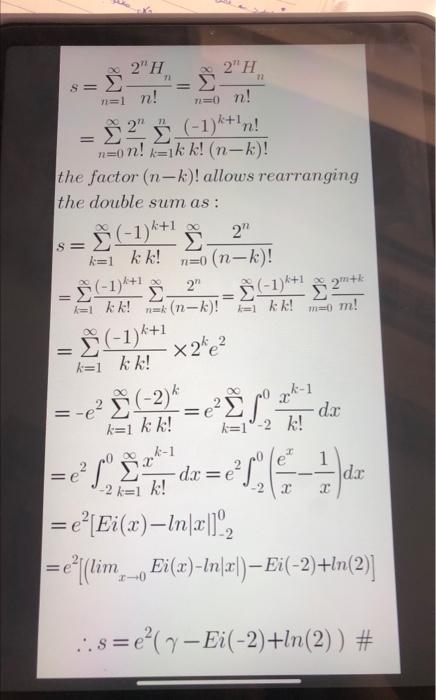 s = ∑_{n=1}^{∞} 2ⁿH_n / n! = ∑_{n=0}^{∞} 2ⁿH_n / n!
= ∑_{n=0}^{∞} 2ⁿ/n! ∑_{k=1}^{n} (-1)^{k+1} n! / k k! (n-k)!
the factor (n-k)! allows rearranging
the double sum as :
s = ∑_{k=1}^{∞} (-1)^{k+1} / k k! ∑_{n=0}^{∞} 2ⁿ / (n-k)!
= ∑_{k=1}^{∞} (-1)^{k+1} / k k! ∑_{n=k}^{∞} 2ⁿ / (n-k)! = ∑_{k=1}^{∞} (-1)^{k+1} / k k! ∑_{m=0}^{∞} 2^{m+k} / m!
= ∑_{k=1}^{∞} (-1)^{k+1} / k k! ×2^k e²
= -e² ∑_{k=1}^{∞} (-2)^k / k k! = e² ∑_{k=1}^{∞} ∫_{-2}^{0} x^{k-1} / k! dx
= e² ∫_{-2}^{0} ∑_{k=1}^{∞} x^{k-1} / k! dx = e² ∫_{-2}^{0} (e^x / x - 1 / x) dx
= e²[Ei(x)-ln|x|]_{-2}^{0}
= e²[(lim_{x→0} Ei(x)-ln|x|)-Ei(-2)+ln(2)]
∴ s = e²( γ - Ei(-2)+ln(2) ) #